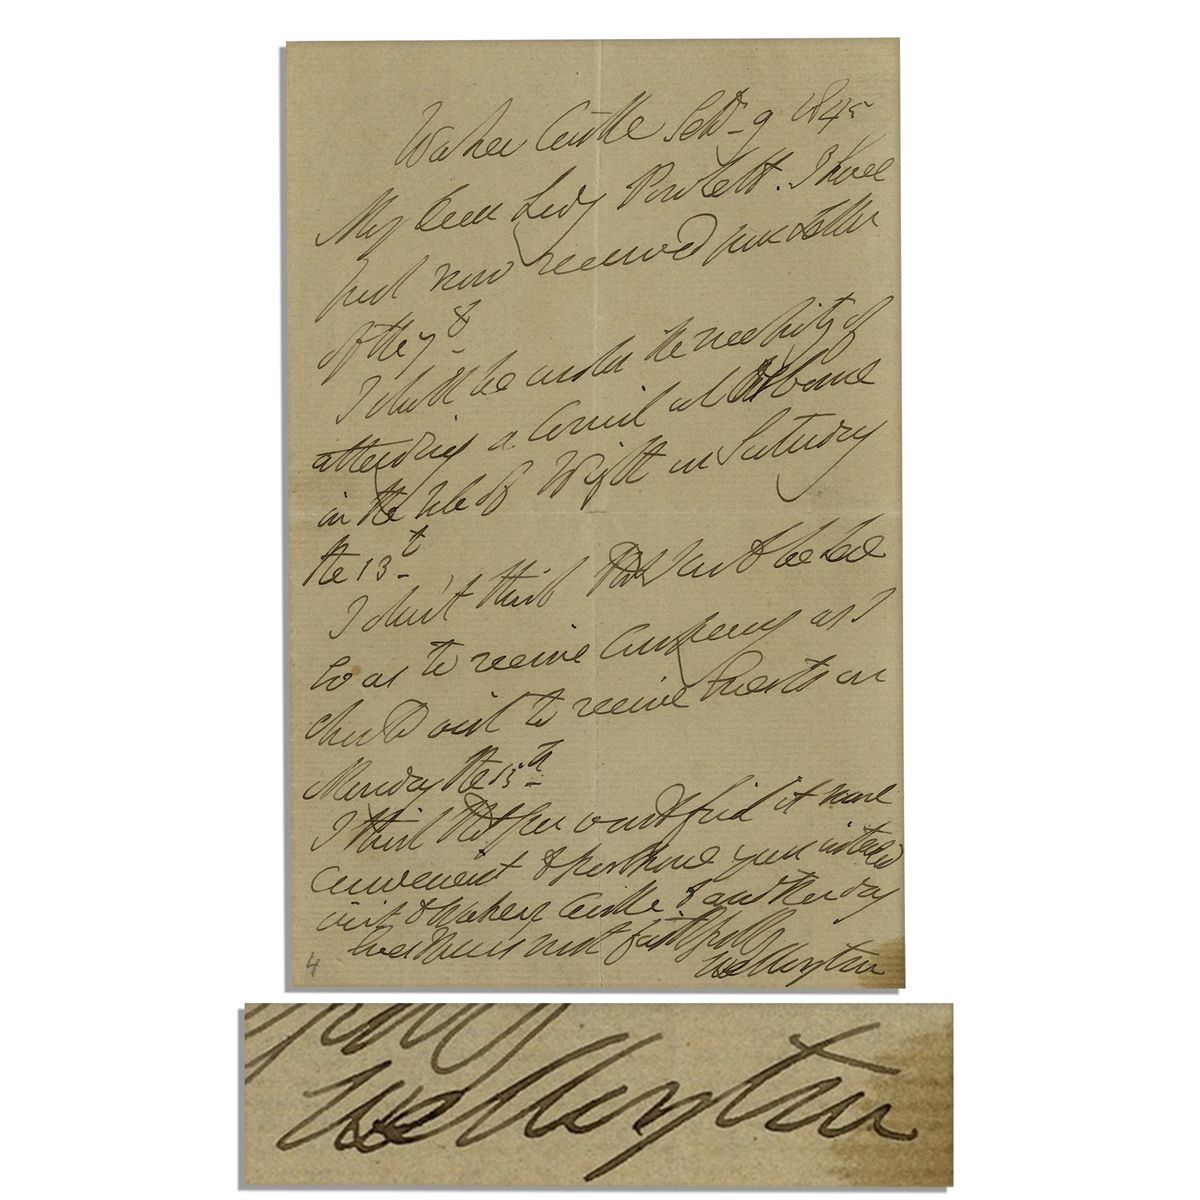 Walmer Castle Sept 9 1845
My dear Lady Powlett. I have
just now received your Letter
of the 7th
I shall be under the necessity of
attending a Council at Osborne
in the Isle of Wight on Saturday
the 13th
I don't think that I can be back
so as to receive Company as I
should wish to receive Guests on
Monday the 15th
I think that you would find it more
convenient to postpone your intended
visit to Walmer Castle to another day
Believe me most faithfully
Wellington
4
Wellington